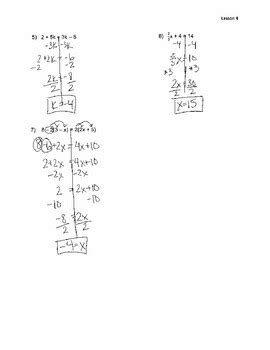 Lesson 4
5) 2 + 5k = 3k - 6
-3k -3k
2+2k = -6
-2 -2
2k/2 = -8/2
k = -4
6) 2/3 x + 4 = 14
-4 -4
2/3 x = 10
*3 *3
2x/2 = 30/2
x = 15
7) 8 - 2(3 - x) = 2(2x + 5)
8-6+2x = 4x+10
2+2x = 4x+10
-2x -2x
2 = 2x+10
-10 -10
-8/2 = 2x/2
-4 = x